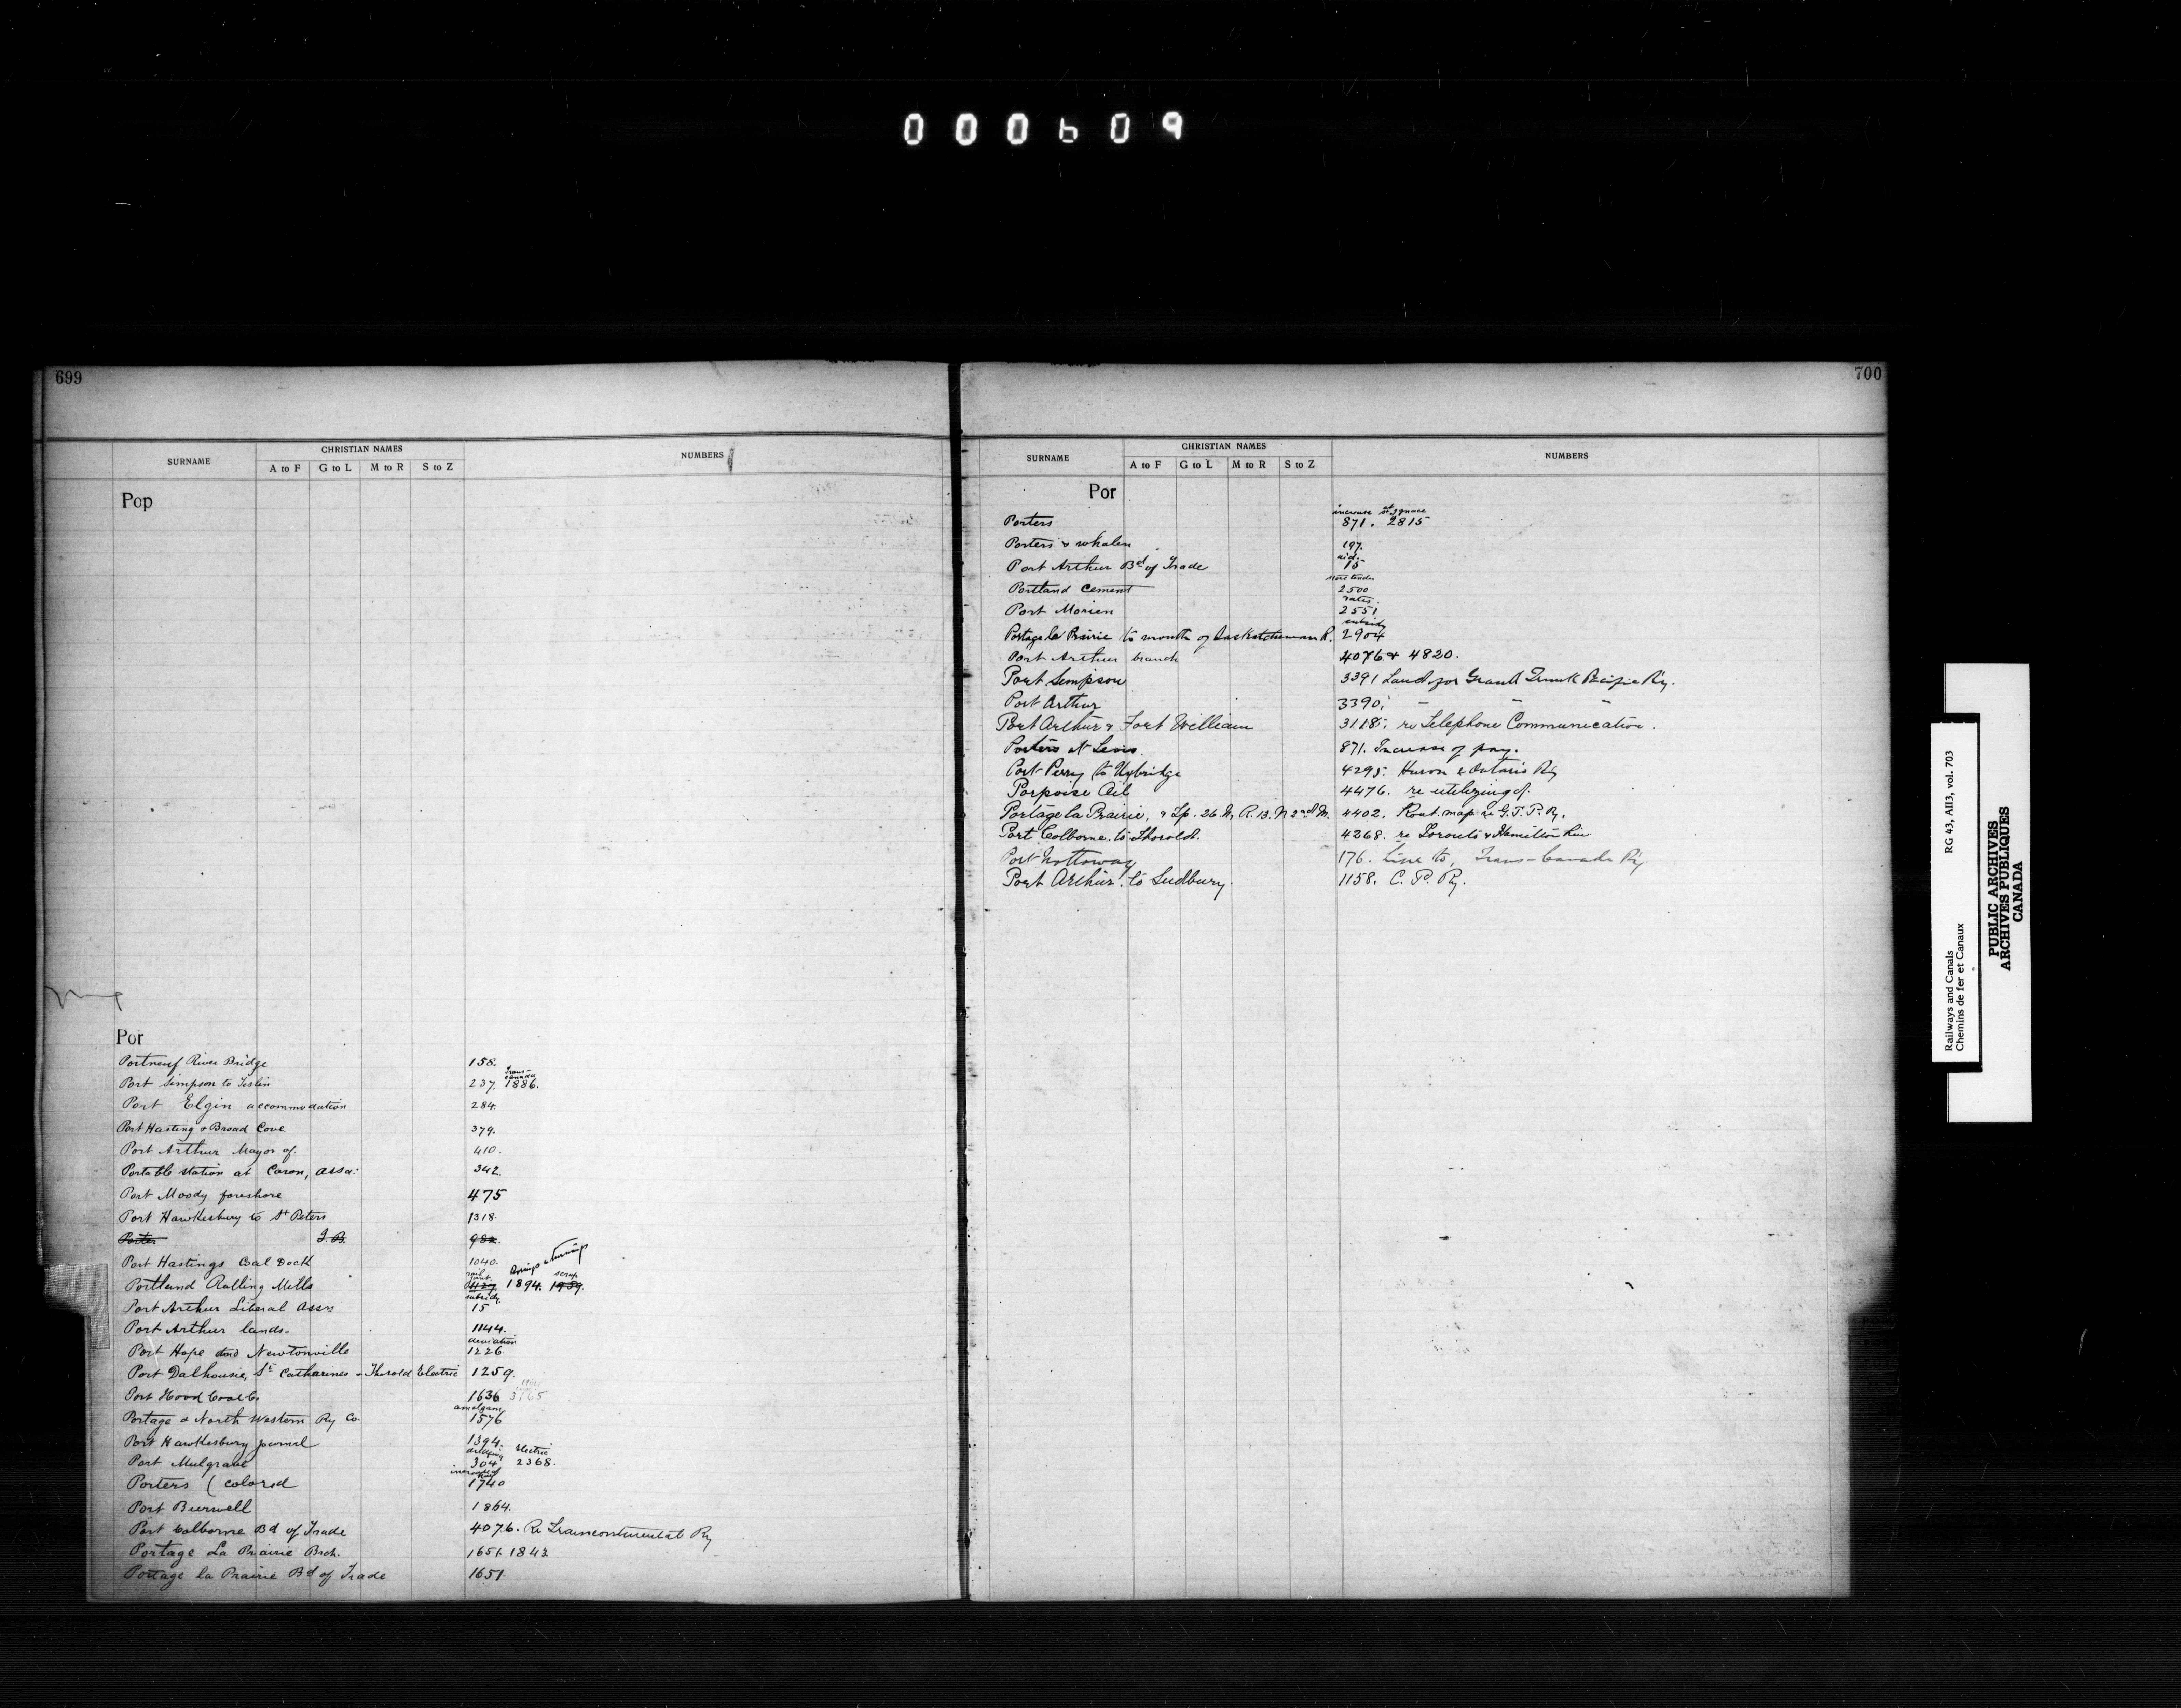 000609
699
SURNAME CHRISTIAN NAMES NUMBERS
A to F G to L M to R S to Z
Pop
Por
Portneuf River Bridge 158.
Trans-
canada
Port Simpson to Teslin 237. 1886.
Port Elgin accommodation 284.
Port Hasting & Broad Cove 379.
Port Arthur Mayor of 410.
Portable station at Caron, Assa: 342.
Port Moody foreshore 475
Port Hawkesbury to St Peters 1318.
Porter J. B. 982.
Port Hastings Coal Dock 1040.
Borings & turnings
rail joint. scrap
Portland Rolling Mills 1894. 1989.
subsidy
Port Arthur Liberal Assn 15
Port Arthur lands- 1144.
deviation
Port Hope and Newtonville 1226
Port Dalhousie, St Catharines & Thorold Electric 1259.
Port Hood Coal Co. 1636 3765
amalgam
Portage & North Western Ry Co. 1576
Port Hawkesbury Journal 1394.
dredging Electric
Port Mulgrave 304 2368.
increase of
Porters (colored 1740
Port Burwell 1864.
Port Colborne Bd of Trade 4076. Re Transcontinental Ry
Portage La Prairie Brch. 1651. 1843.
Portage la Prairie Bd of Trade 1651.
700
SURNAME CHRISTIAN NAMES NUMBERS
A to F G to L M to R S to Z
Por
increase St Ignace
Porters 871. 2815
Porters & whalen 197.
aid.
Port Arthur Bd of Trade 15
store tender
Portland Cement 2500
rates.
Port Morien 2551
subsidy
Portage la Prairie to mouth of Saskatchewan R. 2904
Port Arthur branch 4076 & 4820.
Port Simpson 3391 Land for Grand Trunk Pacific Ry.
Port Arthur 3390; - - -
Port Arthur & Fort William 3118; re Telephone Communication.
Porters at Levis 871. Increase of pay.
Port Perry to Uxbridge 4295. Huron & Ontario Ry
Porpoise Oil 4476. re utilizing of.
Portage la Prairie, & Tp. 26 N, R. 13. N 2nd M. 4402. Rout. map re G.T.P. Ry.
Port Colborne. to Thorold. 4268. re Toronto & Hamilton Line
Port Nottoway 176. Line to, Trans-Canada Ry
Port Arthur. to Sudbury. 1158. C. P. Ry.
Railways and Canals RG 43, AII3, vol. 703
Chemins de fer et Canaux
PUBLIC ARCHIVES
ARCHIVES PUBLIQUES
CANADA